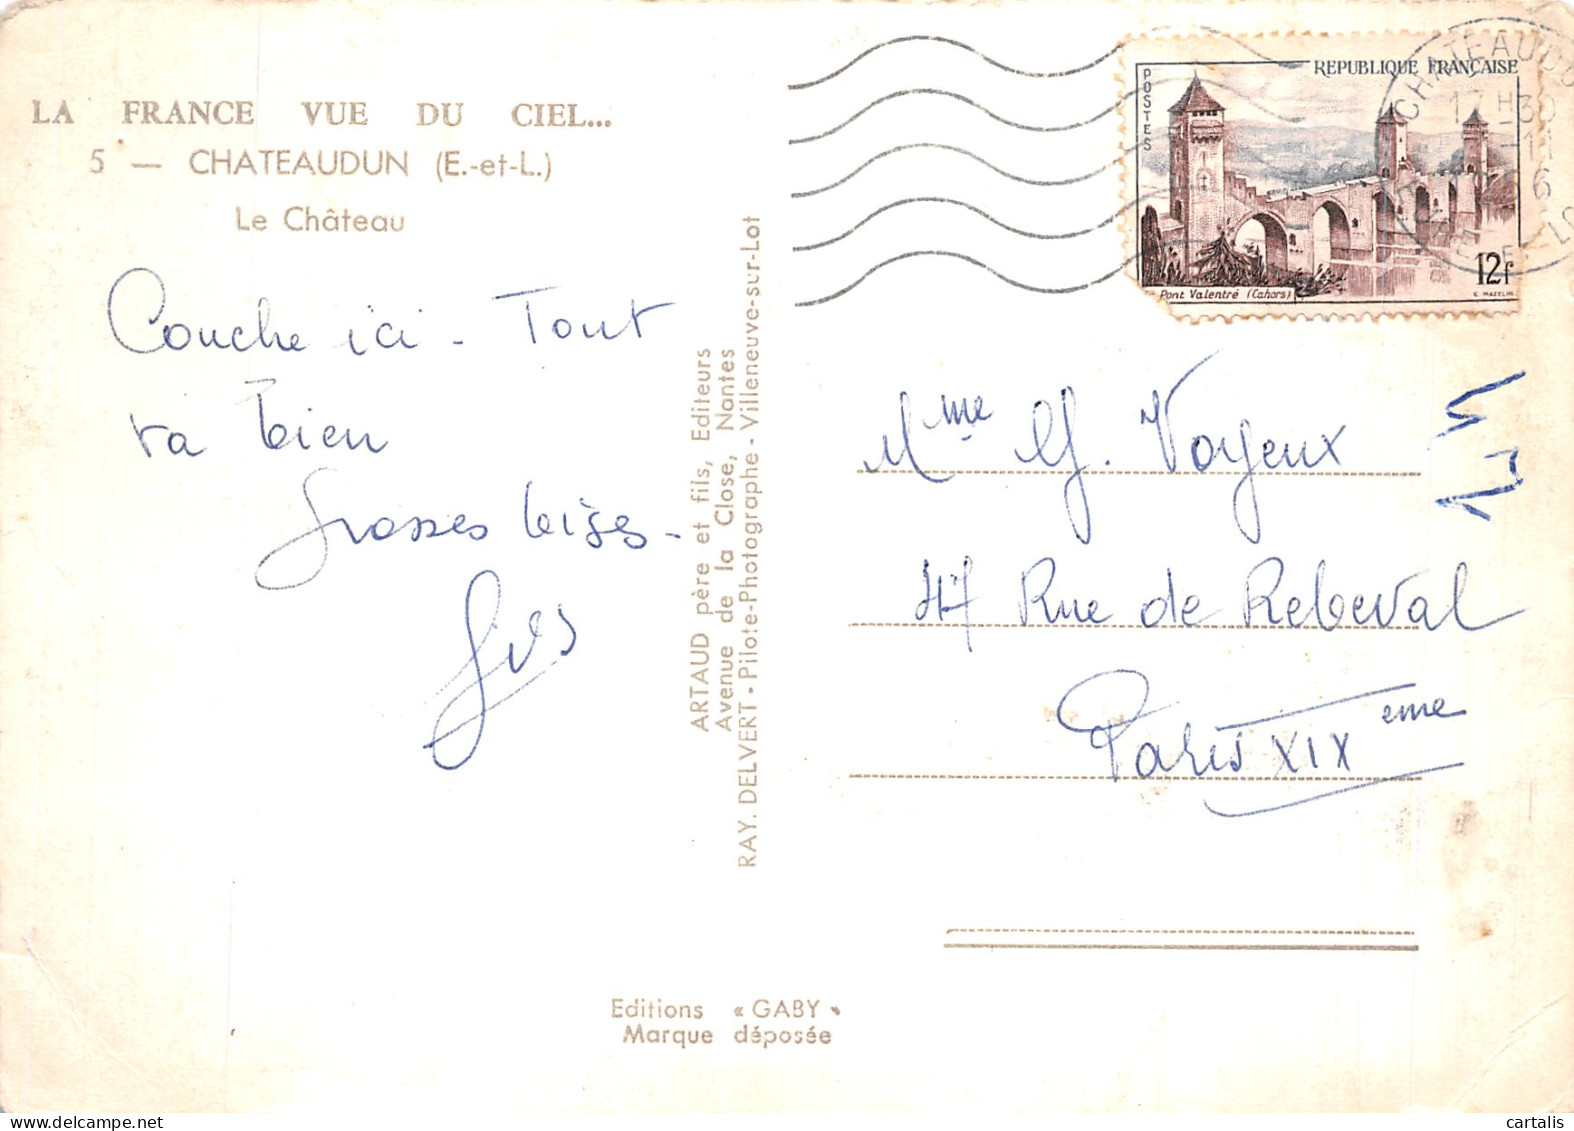 LA FRANCE VUE DU CIEL...
5 — CHATEAUDUN (E.-et-L.)
Le Château
Couche ici - Tout
va bien
Grosses bises -
Yves
ARTAUD père et fils, Editeurs
Avenue de la Close, Nantes
RAY. DELVERT - Pilote-Photographe - Villeneuve-sur-Lot
POSTES
REPUBLIQUE FRANÇAISE
Pont Valentré (Cahors)
12f
C. MAZELIN
CHATEAUDU
17 H30
-11
6
Mme G. Voyeux
47 Rue de Rebeval
Paris XIX eme
Editions « GABY »
Marque déposée
cartalis